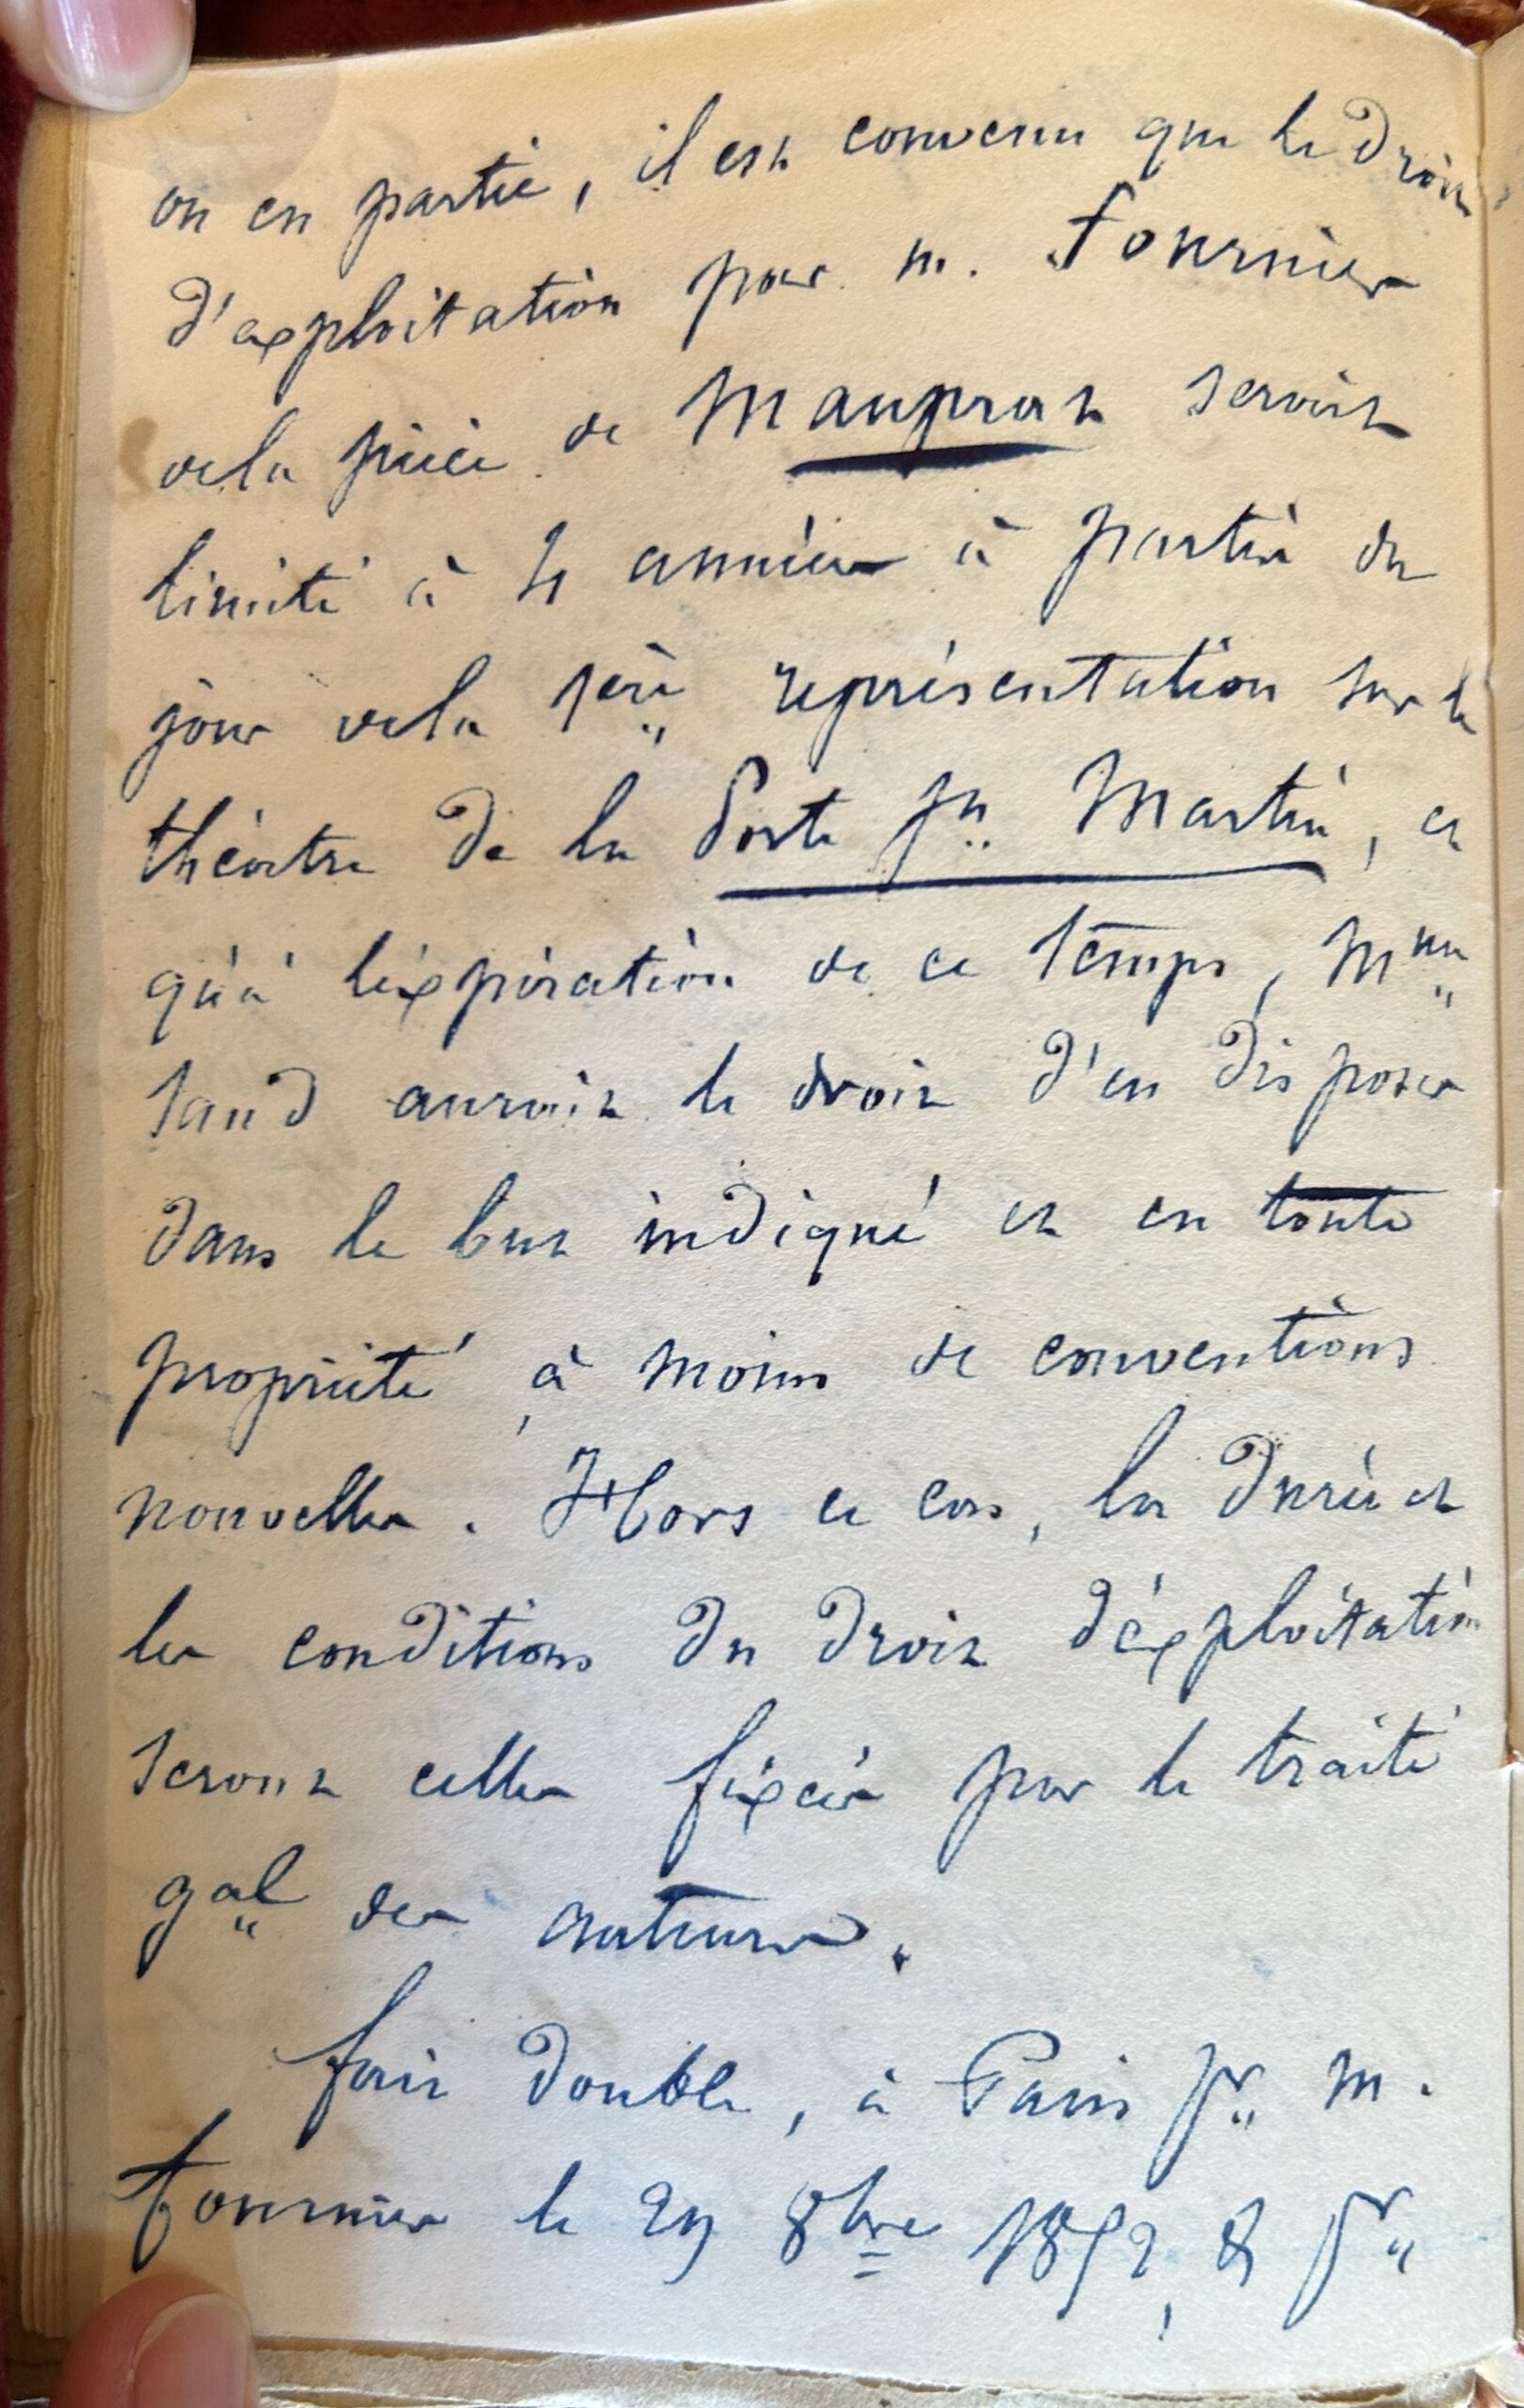 ou en partie, il est convenu que le droit
d'exploitation par M. Fournier
de la pièce de Mauprat serait
limité à 4 années à partir du
jour de la 1ère représentation sur le
théâtre de la Porte St. Martin, et
qu'à l'expiration de ce temps, Mme
Sand aurait le droit d'en disposer
dans le but indiqué et en toute
propriété, à moins de conventions
nouvelles. Hors ce cas, la durée et
les conditions du droit d'exploitation
seront celles fixées par le traité
gal des auteurs.
fait double, à Paris pr M.
Fournier le 29 8bre 1852, & pr